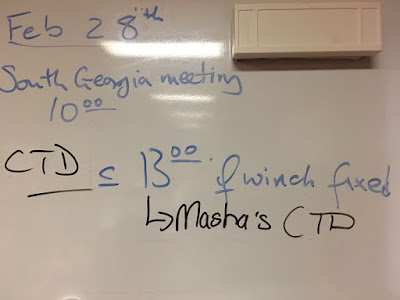 Feb 28th
South Georgia meeting
10 00
CTD ≤ 13 00 if winch fixed
↳ Masha's CTD